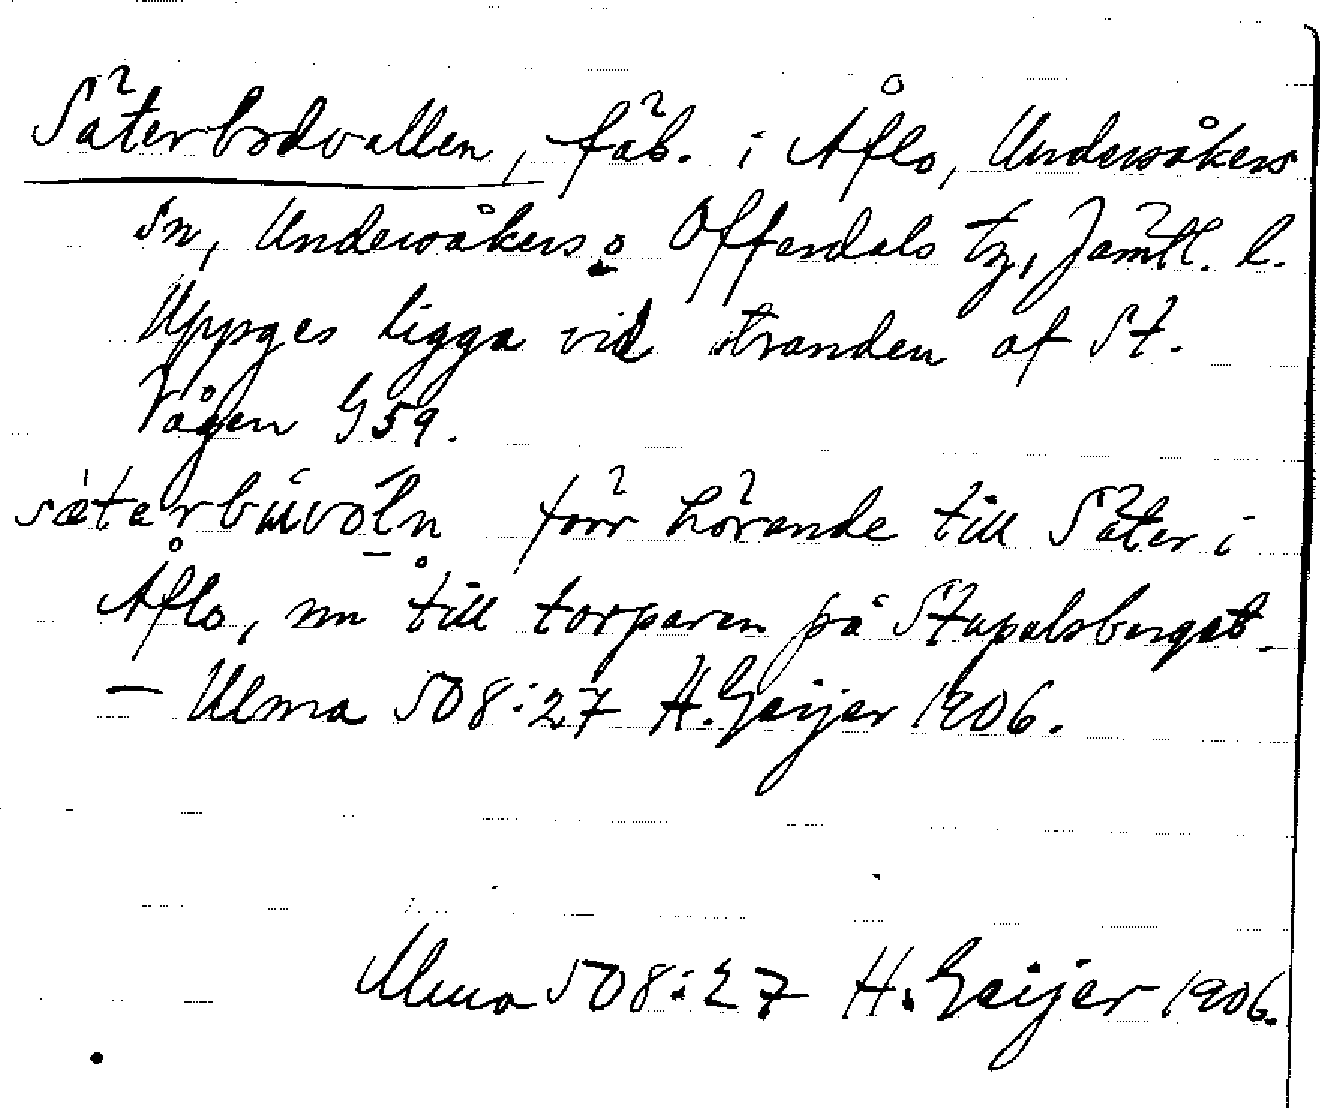 Säterbodvallen, fäb. i Åflo, Undersåkers
sn, Undersåkers o Offerdals tg, Jämtl. l.
Uppges ligga vid stranden af St.
Vågen G59.
sæterbuvoln förr hörande till Säter i
Åflo, nu till torparen på Stupelsberget.
— Ulma 508:27 H. Geijer 1906.
Ulma 508:27 H. Geijer 1906.